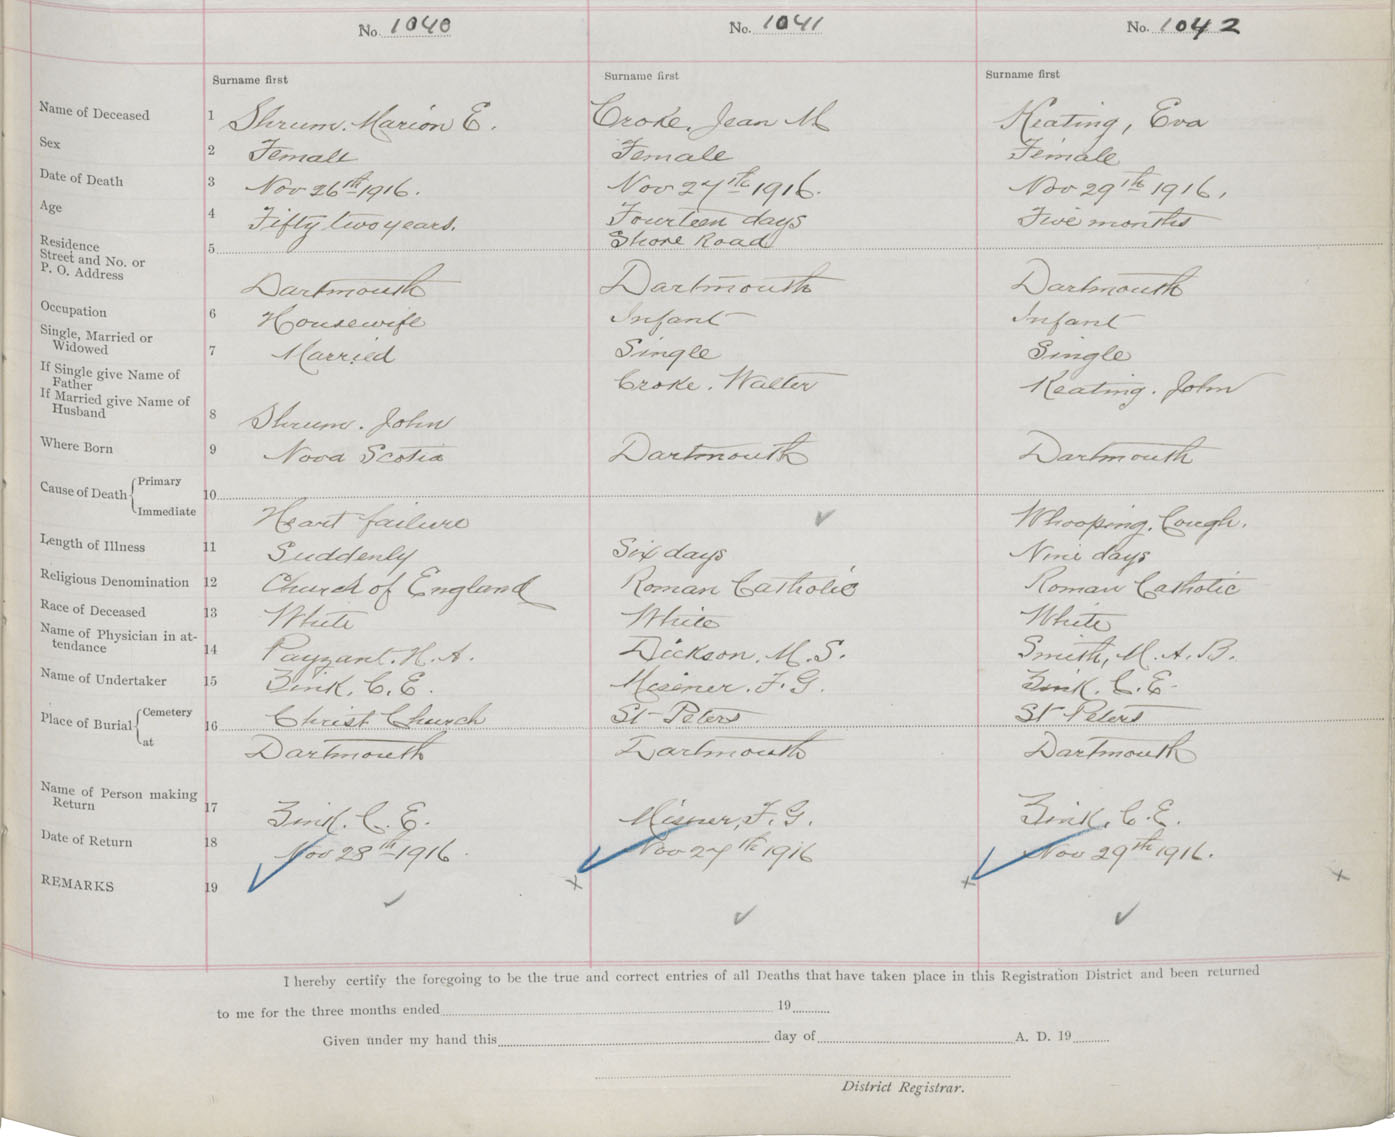 No. 1040 No. 1041 No. 1042
Surname first Surname first Surname first
Name of Deceased 1 Shrum. Marion E. Croke. Jean M Keating, Eva
Sex 2 Female Female Female
Date of Death 3 Nov 26th 1916. Nov 27th 1916. Nov 29th 1916.
Age 4 Fifty two years. Fourteen days Five months
Residence Street and No. or P. O. Address 5 Shore Road
Dartmouth Dartmouth Dartmouth
Occupation 6 Housewife Infant Infant
Single, Married or Widowed 7 Married Single Single
If Single give Name of Father Croke. Walter Keating. John
If Married give Name of Husband 8 Shrum. John
Where Born 9 Nova Scotia Dartmouth Dartmouth
Cause of Death { Primary 10
Immediate Heart failure Whooping Cough.
Length of Illness 11 Suddenly Six days Nine days
Religious Denomination 12 Church of England Roman Catholic Roman Catholic
Race of Deceased 13 White White White
Name of Physician in attendance 14 Payzant. H. A. Dickson. M. S. Smith, M. A. B.
Name of Undertaker 15 Zink. C. E. Misener. F. G. Zink. C. E.
Place of Burial { Cemetery 16 Christ Church St Peters St Peters
at Dartmouth Dartmouth Dartmouth
Name of Person making Return 17 Zink. C. E. Misner, F. G. Zink, C. E.
Date of Return 18 Nov 28th 1916. Nov 27th 1916 Nov 29th 1916.
REMARKS 19
I hereby certify the foregoing to be the true and correct entries of all Deaths that have taken place in this Registration District and been returned
to me for the three months ended 19
Given under my hand this day of A. D. 19
District Registrar.